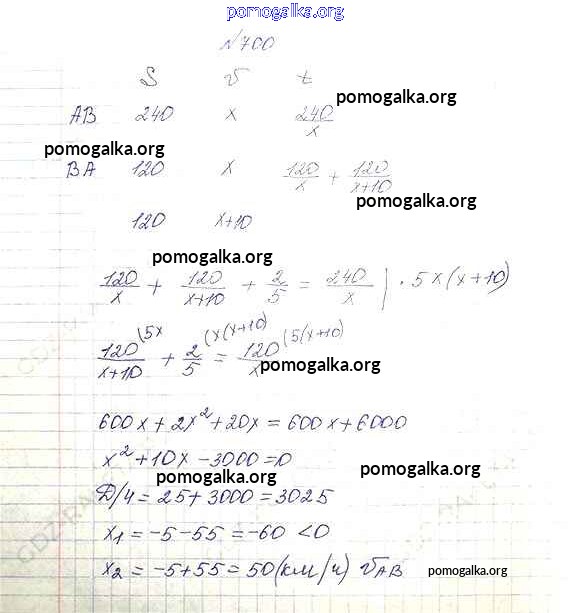 pomogalka.org
№700
S v t
pomogalka.org
AB 240 x 240/x
pomogalka.org
BA 120 x 120/x + 120/(x+10)
pomogalka.org
120 x+10
pomogalka.org
120/x + 120/(x+10) + 2/5 = 240/x | · 5x(x+10)
120/(x+10) (5x + 2/5 (x(x+10) = 120/x (5(x+10)
pomogalka.org
600x + 2x² + 20x = 600x + 6000
x² + 10x - 3000 = 0
pomogalka.org
pomogalka.org
Д/4 = 25 + 3000 = 3025
x₁ = -5 - 55 = -60 < 0
x₂ = -5 + 55 = 50 (км/ч) vAB
pomogalka.org